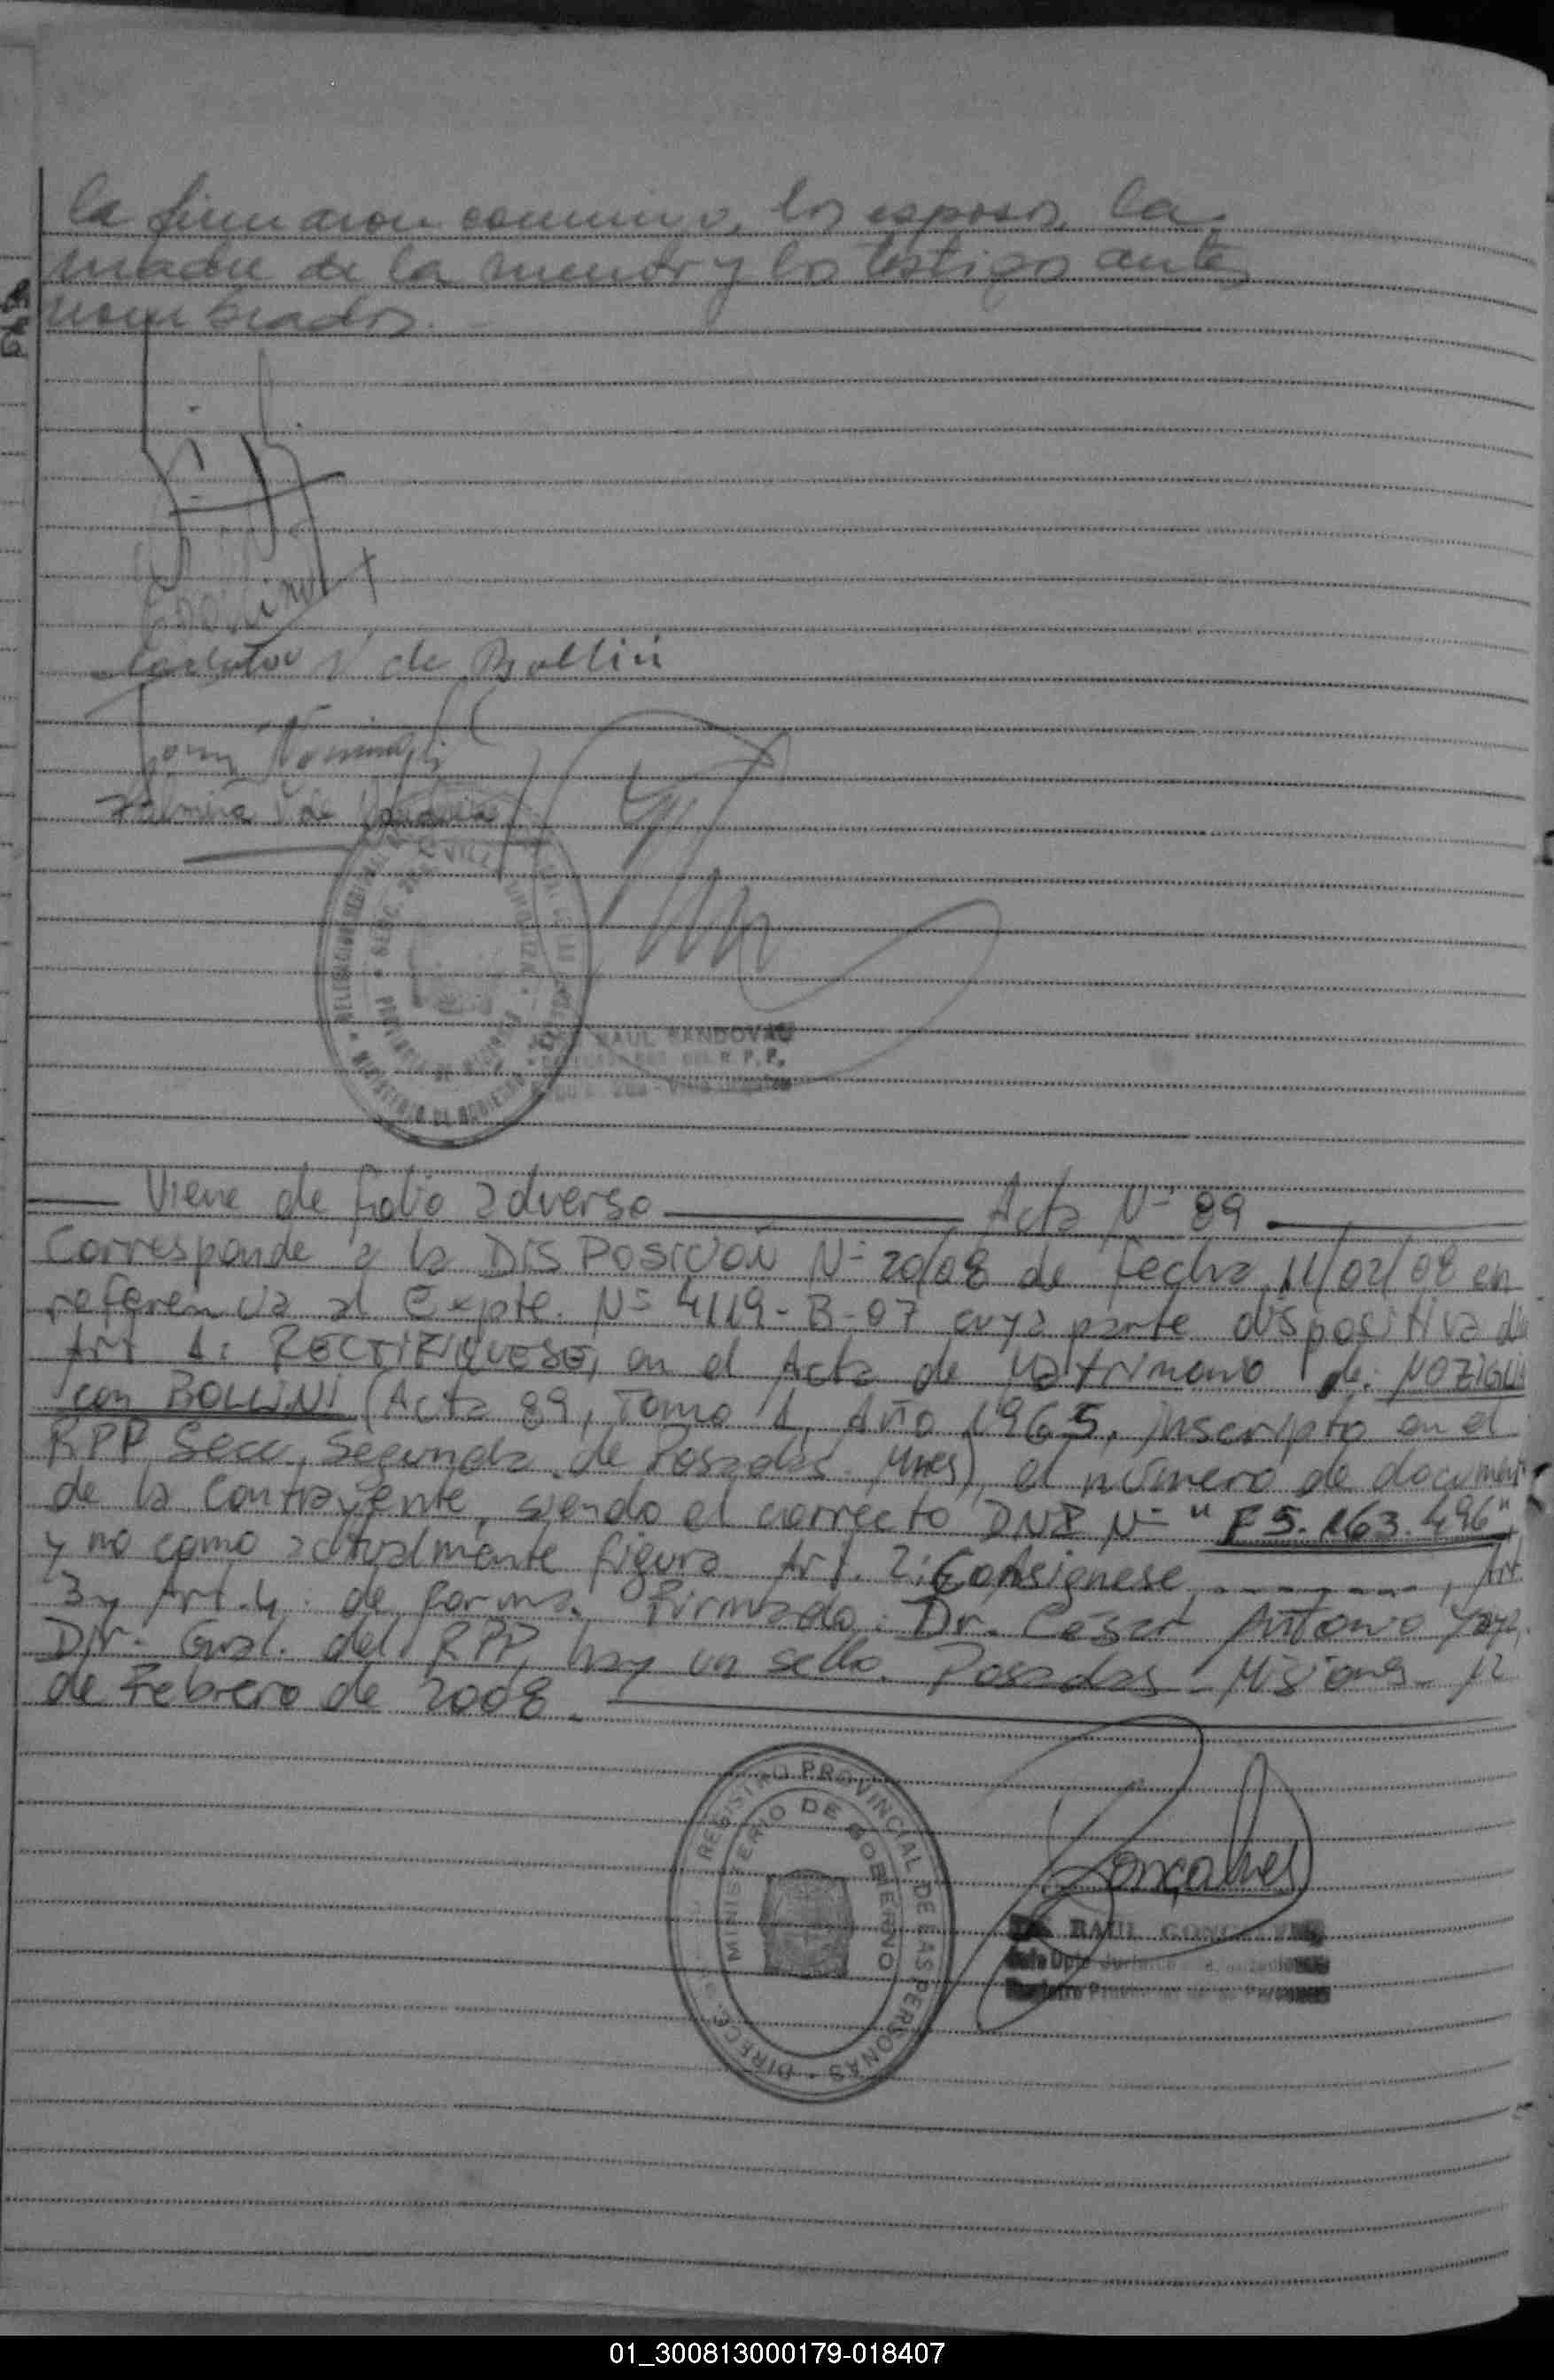 la firmaron conmigo, los esposos, la
madre de la menor y los testigos antes
nombrados.
de Bollini
RAUL SANDOVAL
R. P. P.
MINISTERIO DE GOBIERNO
PROVINCIA DE MISIONES
Viene de folio adverso Acta Nº 89
Corresponde a la DISPOSICIÓN Nº 20/08 de fecha 11/02/08 en
referencia al Expte. Nº 4119-B-07 cuya parte dispositiva dice
Art 1: RECTIFIQUESE, en el Acta de Matrimonio de: NOZIGLIA
con BOLLINI (Acta 89, Tomo 1, Año 1965, inscripto en el
RPP, Secc, Segunda de Posadas. Mnes), el número de document
de la contrayente, siendo el correcto DNI Nº "F5.163.496"
y no como actualmente figura Art. 2: Consignese, Art.
3 y Art. 4: de forma. Firmado: Dr. Cesar Antonio
Dir. Gral. del RPP, hay un sello. Posadas - Misiones - 12
de Febrero de 2008.
REGISTRO PROVINCIAL DE LAS PERSONAS
MINISTERIO DE GOBIERNO
DIRECC.
Goncalves
RAUL GONCALVES
Jefe Dpto
Registro Provincial de las Personas
01_300813000179-018407